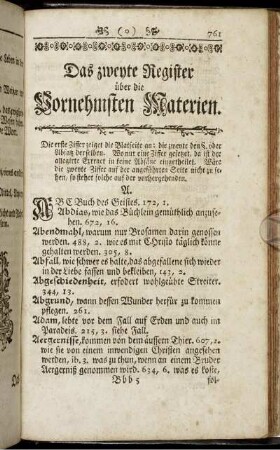 (o) 761
Das zweyte Register
über die
Vornehmsten Materien.
Die erste Ziffer zeiget die Blatseite an: die zweyte den §. oder
Absatz derselben. Wo nur eine Ziffer gesetzt, da ist der
allegirte Extract in keine Absätze eingetheilet. Wäre
die zweyte Ziffer auf der angeführten Seite nicht zu se-
hen, so stehet solche auf der vorhergehenden.
A.
ABC Buch des Geistes. 172, 1.
Abdias, wie das Büchlein gemüthlich anzuse-
hen. 672, 16.
Abendmahl, warum nur Brosamen darin genossen
werden. 488, 2. wie es mit Christo täglich könne
gehalten werden. 305, 8.
Abfall, wie schwer es halte, das abgefallene sich wieder
in der Liebe fassen und bekleiben, 143, 2.
Abgeschiedenheit, erfodert wohlgeübte Streiter.
344, 13.
Abgrund, wann dessen Wunder herfür zu kommen
pflegen. 261.
Adam, lebte vor dem Fall auf Erden und auch im
Paradeis. 215, 3. siehe Fall.
Aergernisse, kommen von dem äussern Thier. 607, 2.
wie sie von einem inwendigen Christen angesehen
werden, ib. 3. was zu thun, wenn an einem Bruder
Aergerniß genommen wird. 634, 6. was es koste,
Bbb 5 sol-